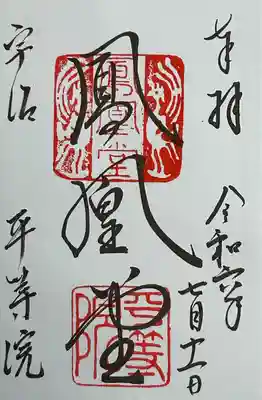 奉拝
令和六年
七月十一日
鳳凰堂
鳳凰堂
平等院
宇治
平等院